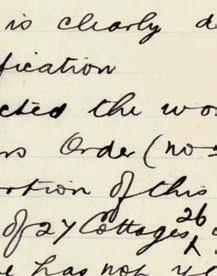 is clearly de
fication
cted the wo
rs Order (no
ortion of this
of 27 Cottages, 26
e has not y